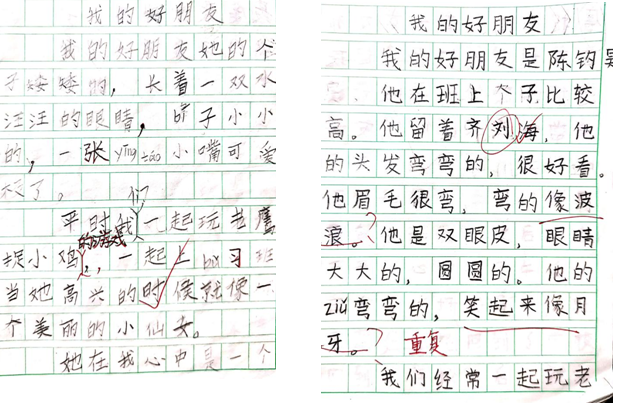 我的好朋友
我的好朋友她的个
子矮矮的，长着一双水
汪汪的眼睛，bí子小小
的，一张yīng táo小嘴可爱
极了。
平时我们一起玩老鹰
捉小鸡的游戏，一起上 bǔ习班
当她高兴的时候就像一
个美丽的小仙女。
她在我心中是一个
《我的好朋友》
我的好朋友是陈钧昊
他在班上个子比较
高。他留着齐刘海，他
的头发弯弯的，很好看。
他眉毛很弯，弯的像波
浪。？他是双眼皮，眼睛
大大的，圆圆的。他的
zuǐ弯弯的，笑起来像月
牙。？重复
我们经常一起玩老